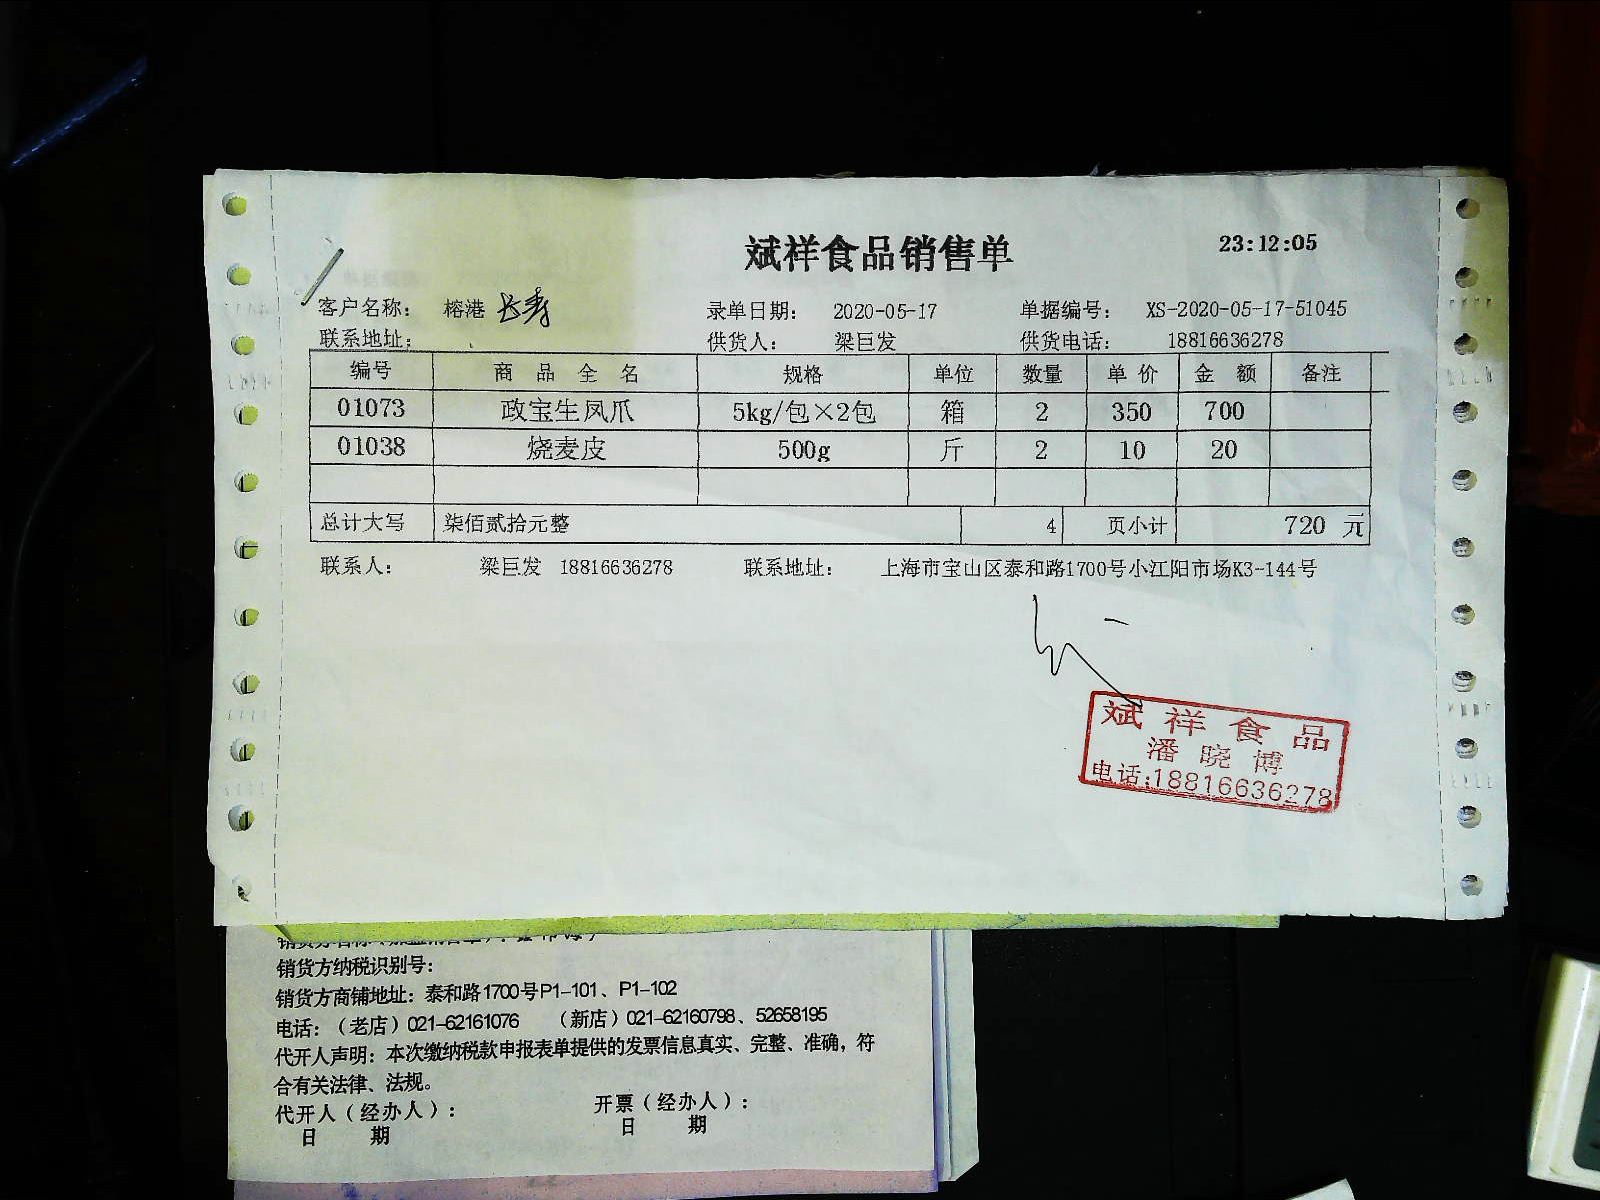 斌祥食品销售单 23:12:05
客户名称： 榕港 长寿 录单日期： 2020-05-17 单据编号： XS-2020-05-17-51045
联系地址： 供货人： 梁巨发 供货电话： 18816636278
编号 商 品 全 名 规格 单位 数量 单 价 金 额 备注
01073 政宝生凤爪 5kg/包×2包 箱 2 350 700
01038 烧麦皮 500g 斤 2 10 20
总计大写 柒佰贰拾元整 4 页小计 720 元
联系人： 梁巨发 18816636278 联系地址： 上海市宝山区泰和路1700号小江阳市场K3-144号
斌祥食品
潘晓博
电话:18816636278
销货方纳税识别号：
销货方商铺地址：泰和路1700号P1-101、P1-102
电话：（老店）021-62161076 （新店）021-62160798、52658195
代开人声明：本次缴纳税款申报表单提供的发票信息真实、完整、准确，符
合有关法律、法规。
代开人（经办人）： 开票（经办人）：
日 期 日 期